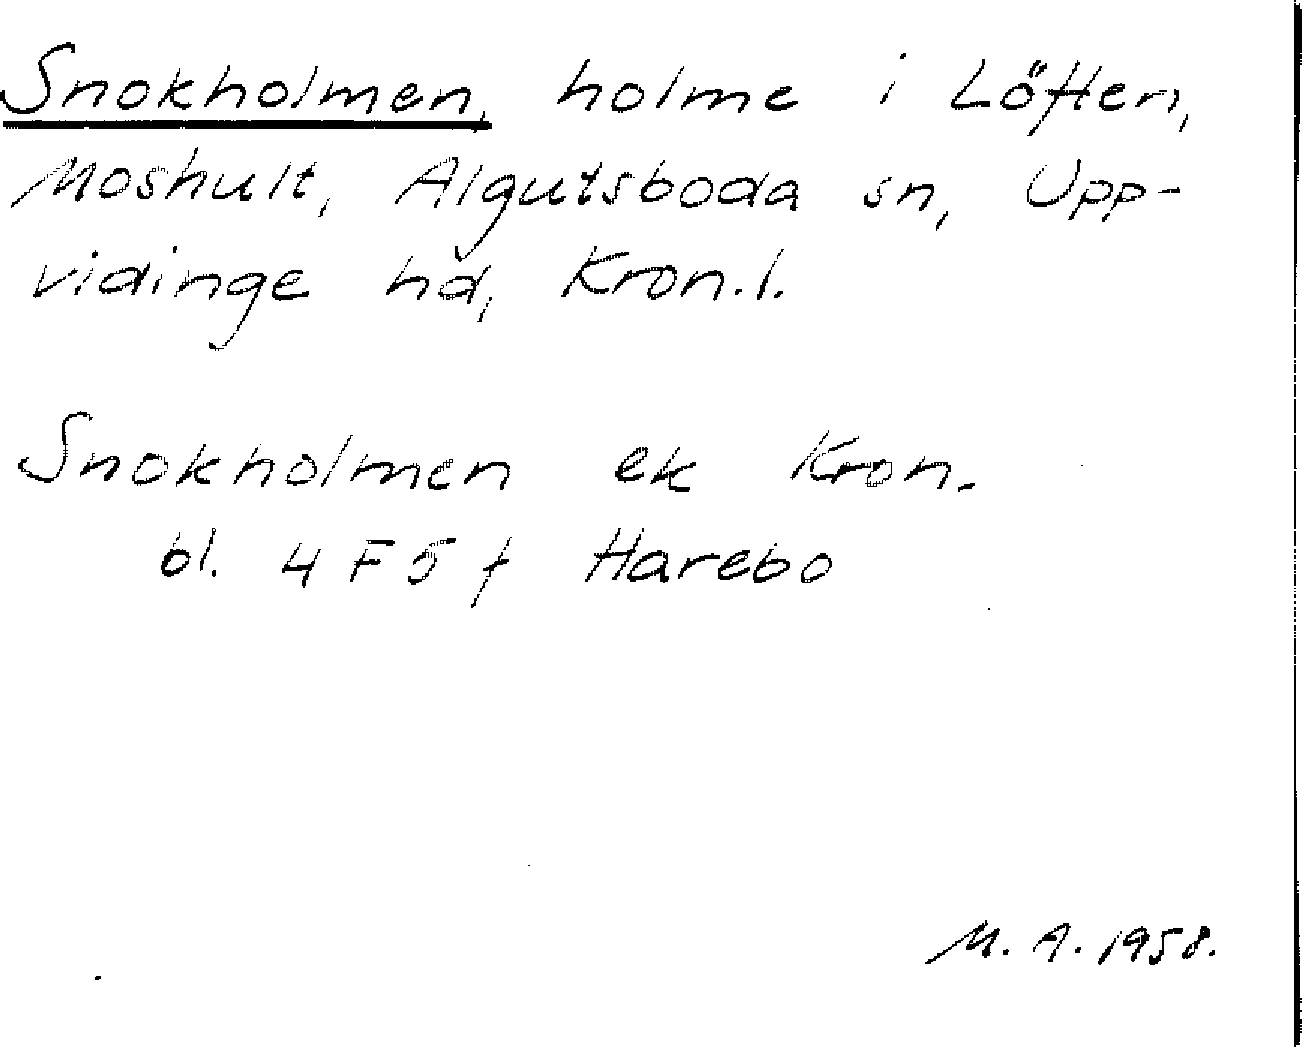 Snokholmen, holme i Löften,
Moshult, Algutsboda sn, Upp-
vidinge hd, Kron.l.
Snokholmen ek Kron.
bl. 4 F 5 f Harebo
M. A. 1958.